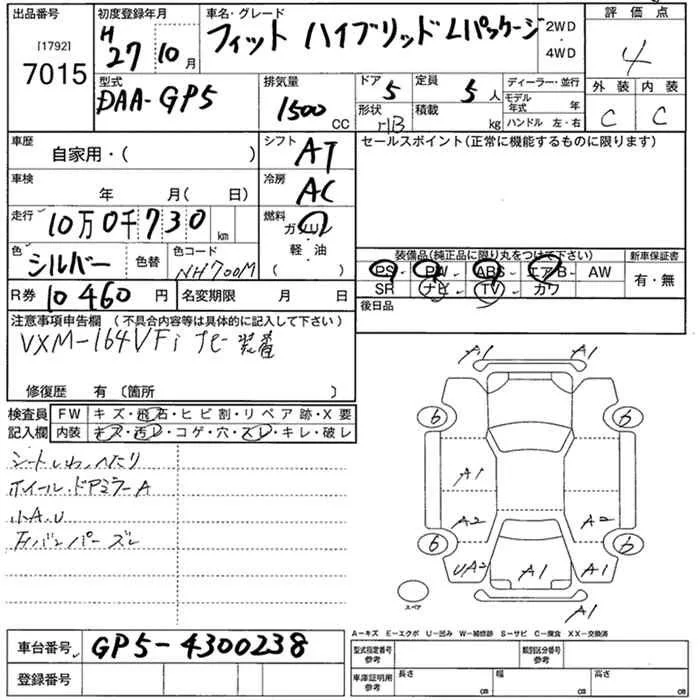 出品番号
[1792]
7015
初度登録年月
H
27 10 月
車名・グレード
フィット ハイブリッド Lパッケージ
2WD
・
4WD
評価点
4
外装 内装
C C
型式
DAA-GP5
排気量
1500 CC
ドア 5
定員 5 人
形状 HB
積載 kg
ディーラー・並行
モデル年式 年
ハンドル 左・右
車歴
自家用・( )
シフト AT
セールスポイント(正常に機能するものに限ります)
車検
年 月( 日)
冷房 AC
走行
10万0千730 km
燃料
ガソリン
・
軽・油
( )
色
シルバー
色替
色コード
NH700M
装備品(純正品に限り丸をつけて下さい)
PS PW ABS エアB AW
SR ナビ TV カワ
新車保証書
有・無
R券 10460 円
名変期限 月 日
後日品
注意事項申告欄 (不具合内容等は具体的に記入して下さい)
VXM-164VFi ナビ装着
修復歴 有 〔箇所 〕
検査員記入欄
FW キズ・飛石・ヒビ割・リペア跡・X要
内装 キズ・汚レ・コゲ・穴・スレ・キレ・破レ
シートしわ、へたり
ホイール・ドアミラーA
小A.U
Fバンパーズレ
A1
A1
6 6
A1
A2 A2
6 6
UA2 A1 A1
A1
スペア
A-キズ E-エクボ U-凹み W-補修跡 S-サビ C-腐食 XX-交換済
車台番号 GP5-4300238
登録番号
型式指定番号
参考
類別区分番号
参考
車庫証明用
参考
長さ cm
幅 cm
高さ cm